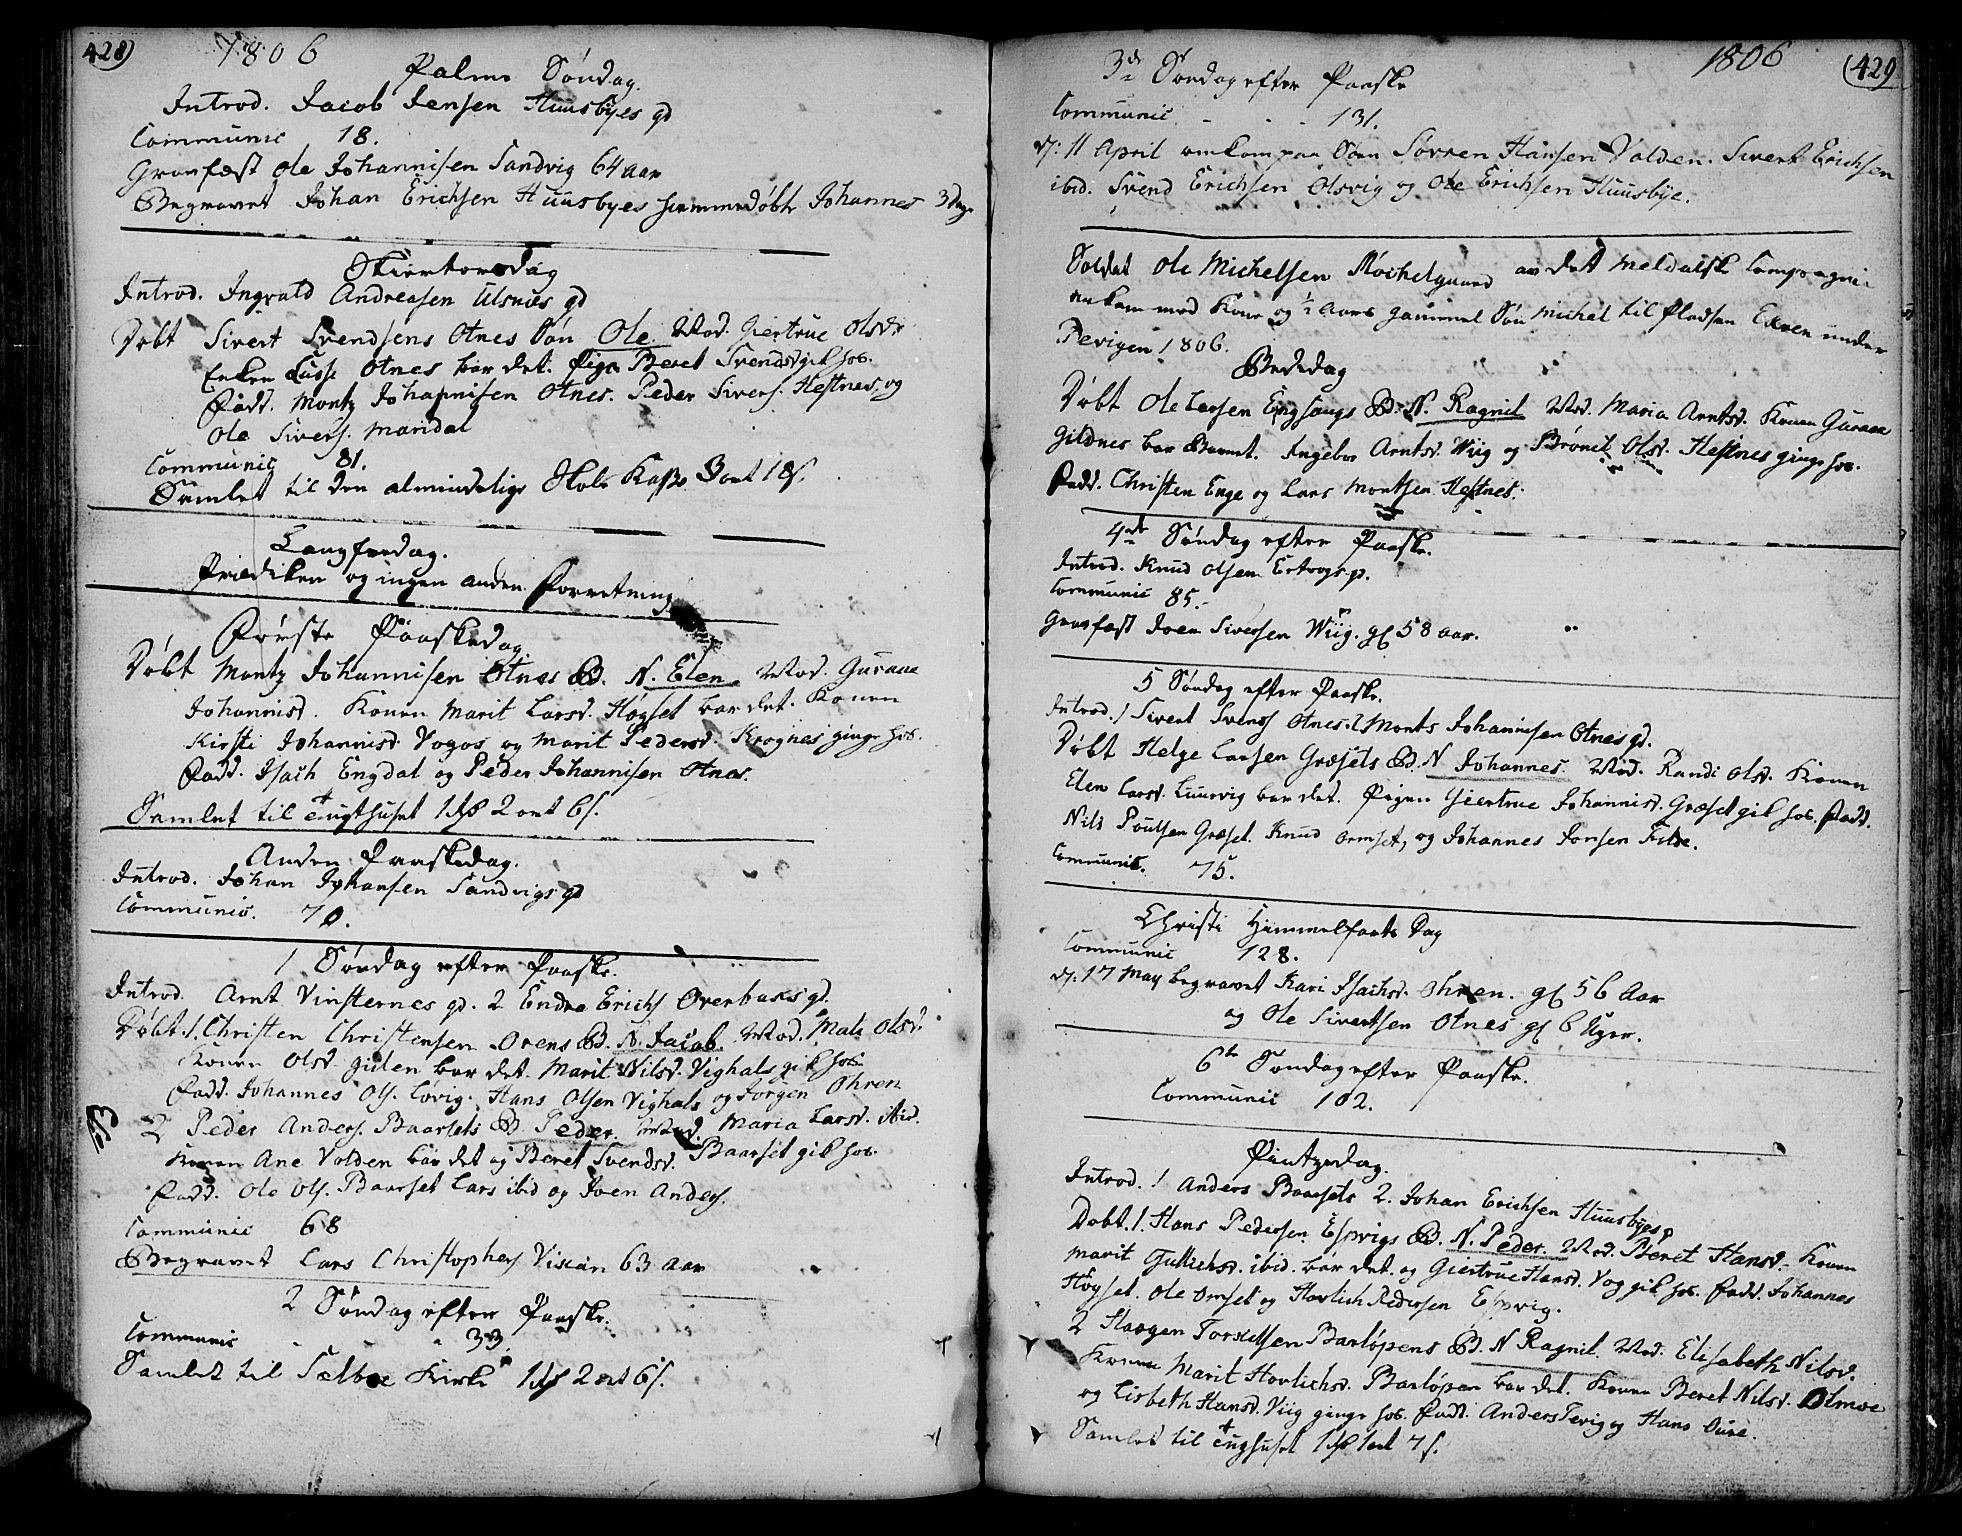 428) 1806
Palme Søndag.
Introd. Jacob Jensen Huusbyes qv
Communic 18.
Gravfæst Ole Johannisen Sandvig 64 aar
Begravet Johan Erichsen Huusbyes hiemmedøbte Johannes 3 Dage
Skiertorsdag
Introd. Ingvald Andreasen Ulsnæs qv
Døbt Sivert Svendsens Otnes Søn Ole. Mod. Giertrue Olsdr
Enken Lusse Otnes bar det. Pigen Beret Svendsd. gik hos.
Fadd. Montz Johannisen Otnes. Peder Sivers. Hestnes, og
Ole Sivers. Maridal
Communic 81.
Samlet til den almindelige Skole Kasse 3 ort 18 s.
Langfredag.
Prædiken og ingen anden Forretning
Første Paaskedag
Døbt Montz Johannisen Otnes B. N. Elen. Mod. Guraae
Johannisd. Konen Marit Larsd. Høgset bar det. Konen
Kirsti Johannisd. Vogos og Marit Pedersd. Krognes ginge hos.
Fadd. Isach Engdal og Peder Johannisen Otnes.
Samlet til Tugthuset 1 rd 2 ort 6 s.
Anden Paaskedag.
Introd. Johan Johansen Sandvigs qv
Communic. 70.
1 Søndag efter Paaske.
Introd. Arnt Vinsternes qv. 2 Endre Erichs Overbuses qv.
Døbt 1. Christen Christensen Orens B. N. Jacob. Mod. Mali Olsd.
Konen Olsd. Gulen bar det. Marit Nilsd. Vighals gik hos.
Fadd. Johannes Ols. Løvig. Hans Olsen Vighals og Jørgen Ohren
2 Peder Anders. Baarsets B. Peder. Mod. Maria Larsd. ibid.
Konen Ane Volden bar det og Beret Svendsd. Baarset gik hos.
Fadd. Ole Ols. Baarset Lars ibid og Joen Anders.
Communic 68
Begravet Lars Christophers 63 aar
2 Søndag efter Paaske.
Communic 33.
Samlet til Sælboe Kirke 1 rd 2 ort 6 s.
1806 (429
3de Søndag efter Paaske
Communic 131.
d: 11 April omkom paa Søen Sørren Hansen Volden. Sivert Erichsen
ibid. Svend Erichsen Olsvig og Ole Erichsen Huusbye.
Soldat Ole Michelsen Møchelgaard av det Meldalsk Compagnie
ankom med Kone og 1/2 Aars gammel Søn Michel til Pladsen under
Tevigen 1806.
Bededag
Døbt Ole Larsen Engsaugs B. N. Ragnil Mod. Maria Arntsd. Konen Guraae
Gildnes bar Barnet. Ingebor Arntsd. Wiig og Brønil Olsd. Hestnes ginge hos.
Fadd. Christen Enge og Lars Montsen Hestnes.
4de Søndag efter Paaske.
Introd. Knud Olsen Ertvogs qv.
Communic 85.
Gravfæst Joen Siversen Wiig. gl 58 aar.
5 Søndag efter Paaske.
Introd. 1 Sivert Svens Otnes. 2 Monts Johannisen Otnes qv.
Døbt Helge Larsen Græsets B. N Johannes. Mod. Randi Olsd. Konen
Elen Larsd. Luurvig bar det. Pigen Giertrue Johannisd. Græset gik hos. Fadd.
Nils Poulsen Græset. Knud Ormset, og Johannes Jonsen
Communic. 75.
Christi Himmelfarts Dag
Communic 128.
d: 17 May begravet Kari Isachsd. Ohren. gl 56 Aar
og Ole Sivertsen Otnes gl 6 Uger.
6te Søndag efter Paaske.
Communic 102.
Pintzedag.
Introd. 1 Anders Baarsets 2. Johan Erichsen Huusbyes qv
Døbt. 1. Hans Pedersen Espvigs B. N. Peder. Mod. Beret Hansd. Konen
Marit Gullichsd. ibid. bar det. og Giertrue Hansd. Vog gik hos. Fadd. Johannes
Høgset. Ole Omset og Havlich Pedersen Espvig.
2 Haagen Torkelsen Barløpens B. N Ragnil. Mod. Elisabeth Nilsd.
Konen Marit Hovlichsd. Barløpen bar det. Konen Beret Nilsd. Olmoe
og Lisbeth Hansd. Viig ginge hos. Fadd. Anders Tevig og Hans Oure.
Samlet til Tugthuset 1 rd 1 ort 7 s.